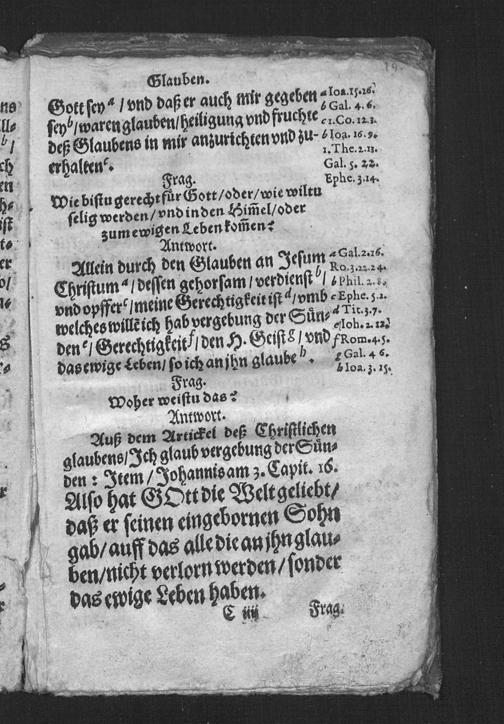 Glauben.
Gott sey a / vnd daß er auch mir gegeben
sey b / waren glauben / heiligung vnd fruchte
deß Glaubens in mir anzurichten vnd zu-
erhalten c.
a Ioa. 15. 26.
b Gal. 4. 6.
c 1. Co. 12. 3.
b Ioa. 16. 9.
1. The. 2. 13.
Gal. 5. 22.
Ephe. 3. 14.
Frag.
Wie bistu gerecht für Gott / oder / wie wiltu
selig werden / vnd in den Him̃el / oder
zum ewigen Leben kom̃en?
Antwort.
Allein durch den Glauben an Jesum
Christum a / dessen gehorsam / verdienst b /
vnd opffer c / meine Gerechtigkeit ist d / vmb
welches willē ich hab vergebung der Sün-
den e / Gerechtigkeit f / den H. Geist g / vnd
das ewige Leben / so ich an jhn glaube h.
a Gal. 2. 16.
Ro. 3. 22. 24.
b Phil. 2. 8.
c Ephe. 5. 2.
d Tit. 3. 7.
e Ioh. 2. 12.
f Rom. 4. 5.
g Gal. 4 6.
h Ioa. 3. 15.
Frag.
Woher weistu das?
Antwort.
Auß dem Artickel deß Christlichen
glaubens / Ich glaub vergebung der Sün-
den : Item / Johannis am 3. Capit. 16.
Also hat GOtt die Welt geliebt /
daß er seinen eingebornen Sohn
gab / auff das alle die an jhn glau-
ben / nicht verlorn werden / sonder
das ewige Leben haben.
C iiij Frag.